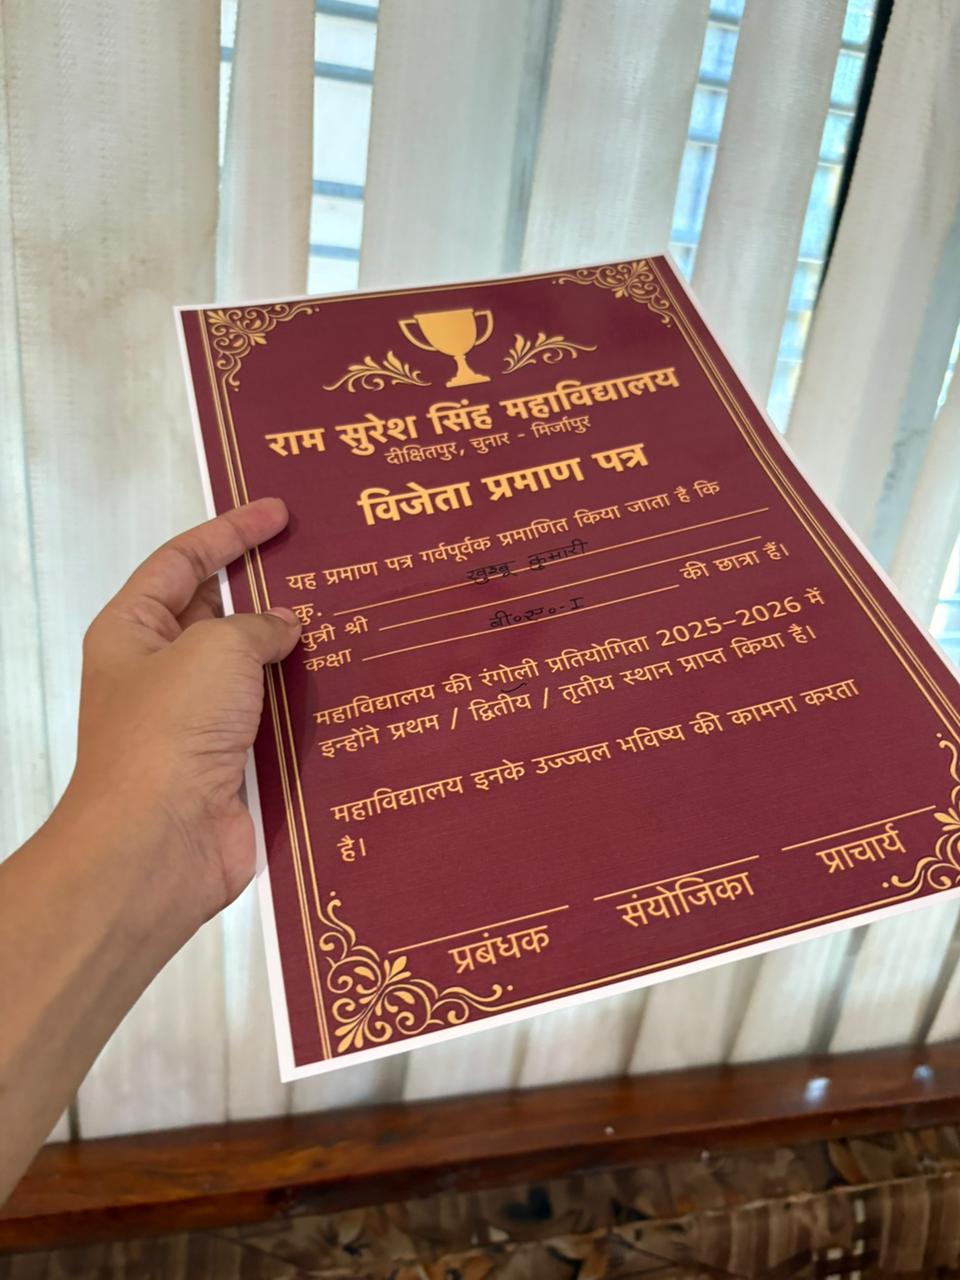 राम सुरेश सिंह महाविद्यालय
दीक्षितपुर, चुनार - मिर्जापुर
विजेता प्रमाण पत्र
यह प्रमाण पत्र गर्वपूर्वक प्रमाणित किया जाता है कि
कु. खुश्बू कुमारी
पुत्री श्री की छात्रा हैं।
कक्षा बी०ए०-I
महाविद्यालय की रंगोली प्रतियोगिता 2025–2026 में
इन्होंने प्रथम / द्वितीय / तृतीय स्थान प्राप्त किया है।
महाविद्यालय इनके उज्ज्वल भविष्य की कामना करता
है।
प्रबंधक संयोजिका प्राचार्य